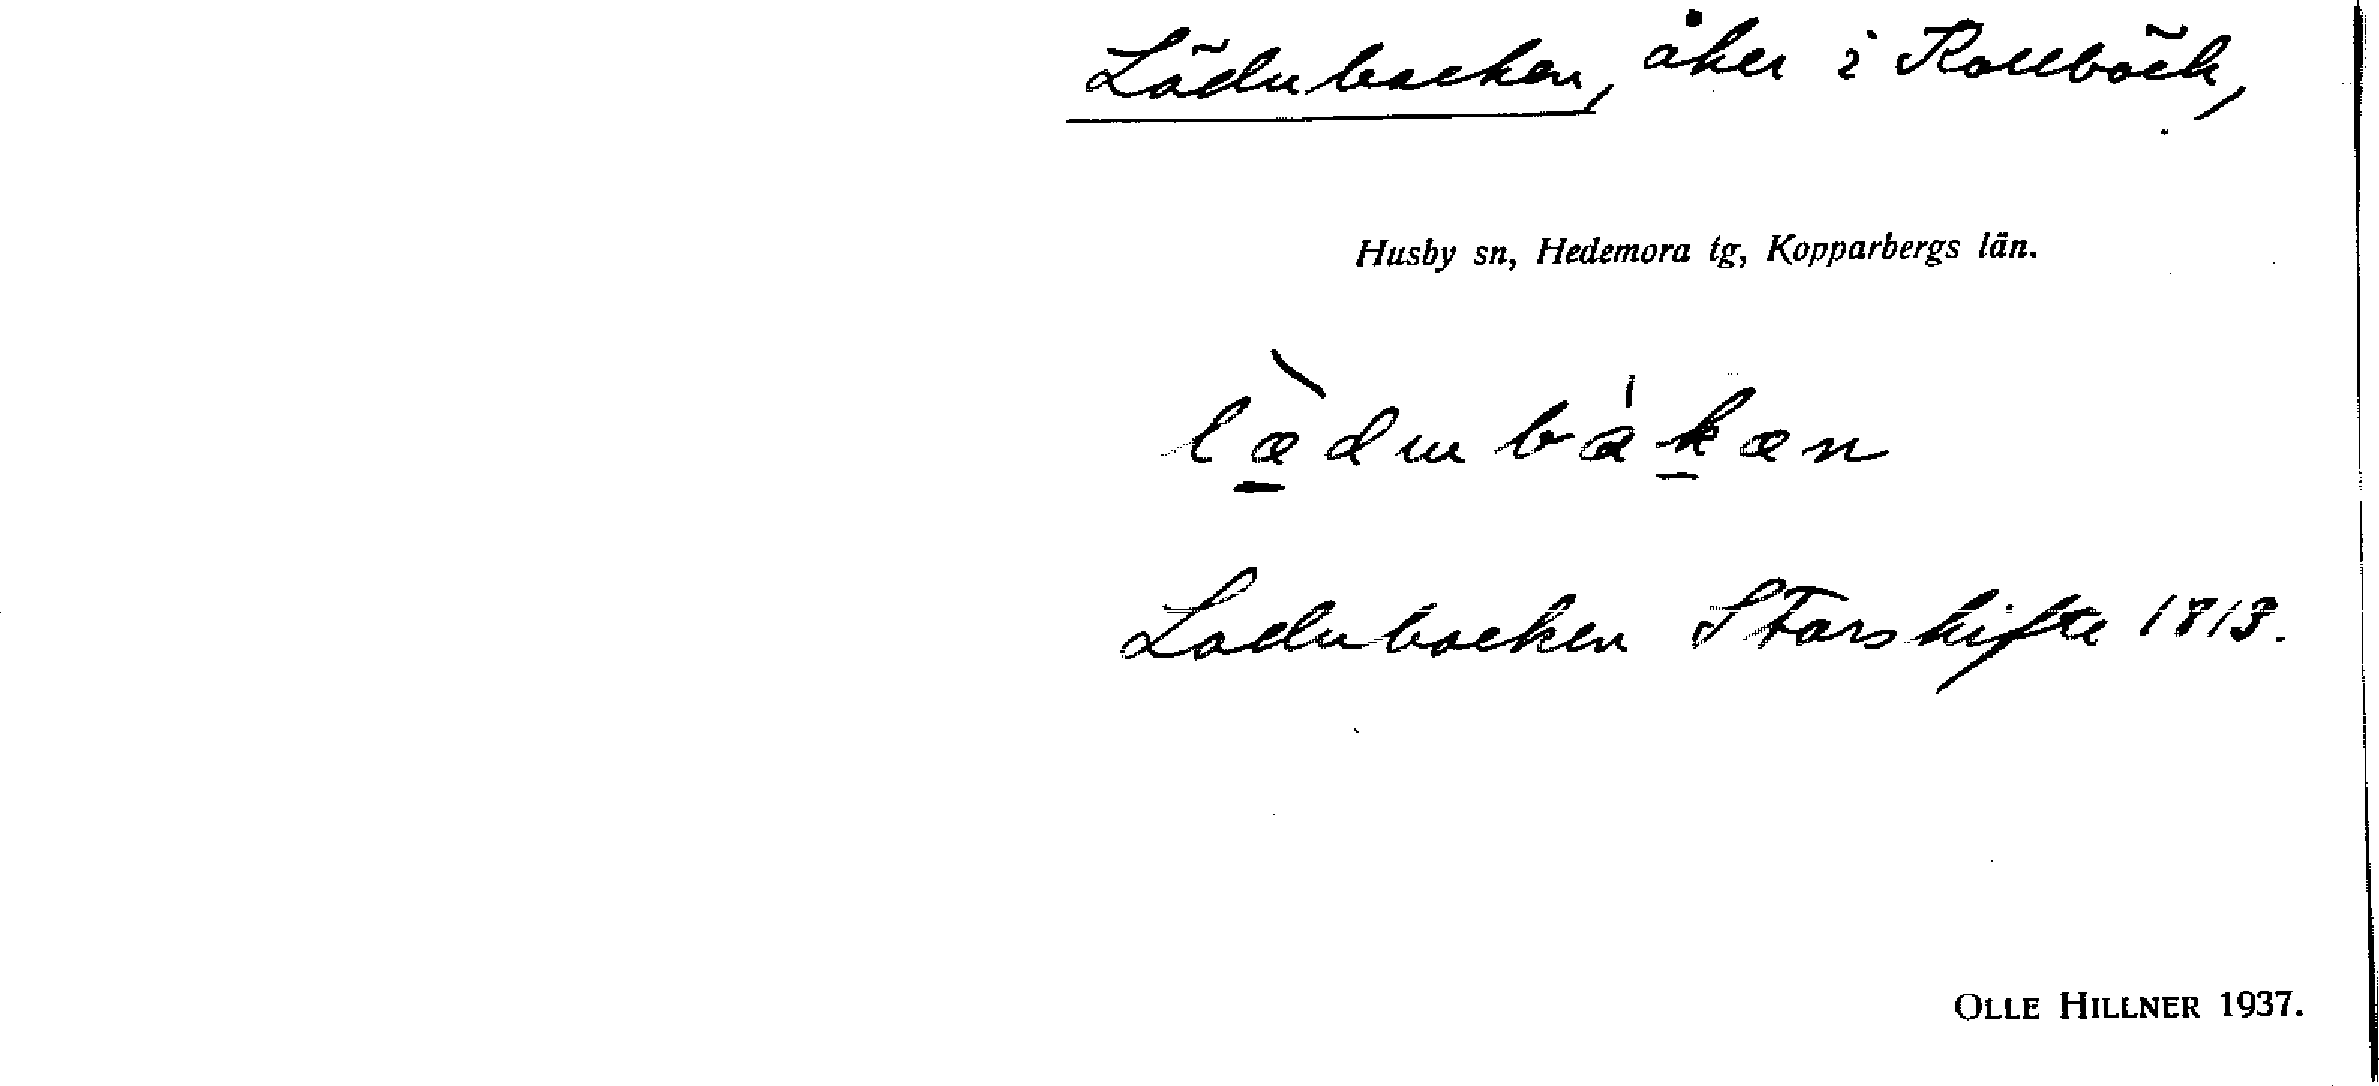 Lädubacken, åker i Rollbäck,
Husby sn, Hedemora tg, Kopparbergs län.
lædubakæn
Ladubacken Storskifte 1813.
OLLE HILLNER 1937.